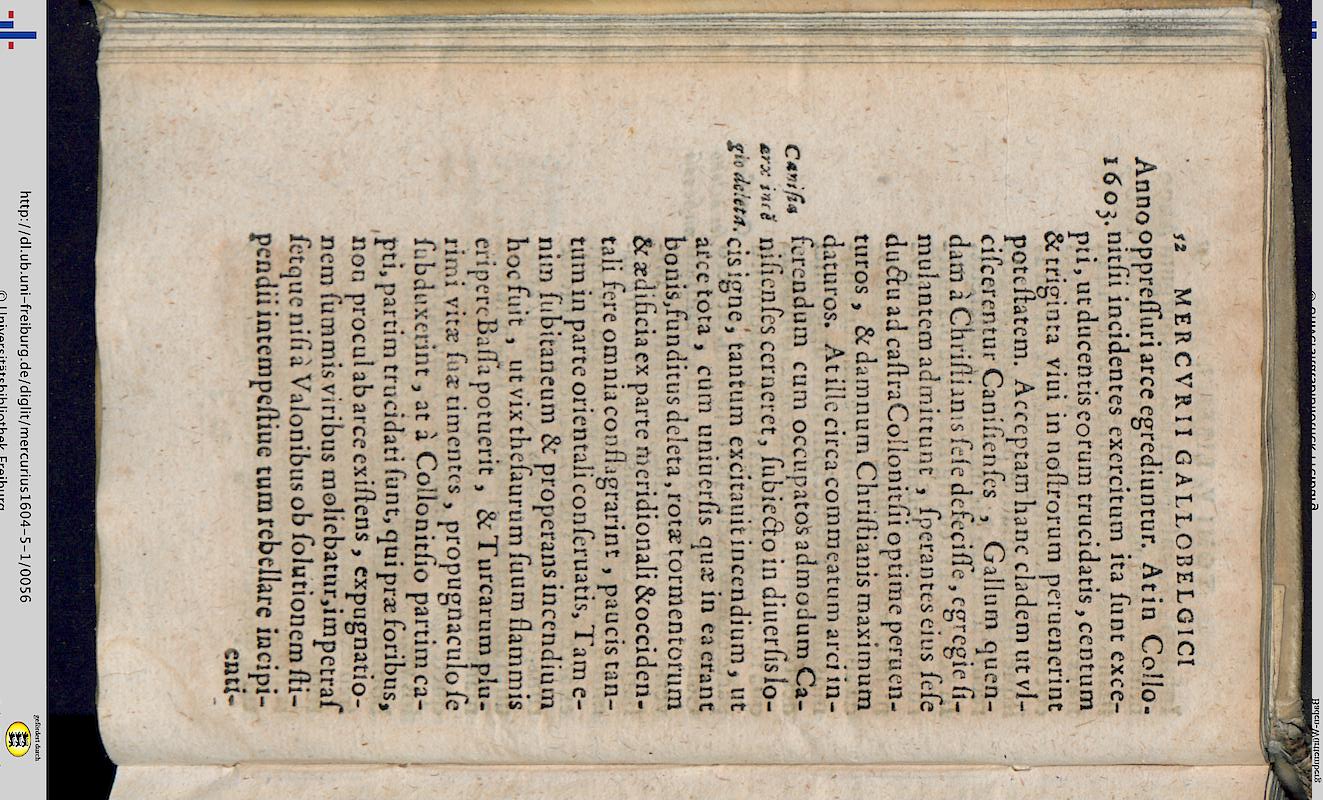 52 MERCVRII GALLOBELGICI
Anno oppreſſuri arce egrediuntur. At in Collo-
1603. nitſii incidentes exercitum ita ſunt exce-
pti, ut ducentis eorum trucidatis, centum
& triginta viui in noſtrorum peruenerint
poteſtatem. Acceptam hanc cladem ut vl-
ciſcerentur Caniſienſes, Gallum quen-
dam à Chriſtianis ſeſe defeciſſe, egregie ſi-
mulantem admittunt, ſperantes eius ſeſe
ductu ad caſtra Collonitſii optime peruen-
turos, & damnum Chriſtianis maximum
daturos. At ille circa commeatum arci in-
Caniſia ferendum cum occupatos admodum Ca-
arx incē niſienſes cerneret, ſubiecto in diuerſis lo-
gio deleta. cis igne, tantum excitauit incendium, ut
arce tota, cum uniuerſis quæ in ea erant
bonis, funditus deleta, rotæ tormentorum
& ædificia ex parte meridionali & occiden-
tali fere omnia conflagrarint, paucis tan-
tum in parte orientali conſeruatis, Tam e-
nim ſubitaneum & properans incendium
hoc fuit, ut vix theſaurum ſuum flammis
eripere Baſſa potuerit, & Turcarum plu-
rimi vitæ ſuæ timentes, propugnaculo ſe
ſubduxerint, at à Collonitſio partim ca-
pti, partim trucidati ſunt, qui præ foribus,
non procul ab arce exiſtens, expugnatio-
nem ſummis viribus moliebatur, impetraſ
ſetque niſi à Valonibus ob ſolutionem ſti-
pendii intempeſtiue tum rebellare incipi-
enti-
http://dl.ub.uni-freiburg.de/diglit/mercurius1604-5-1/0056
© Universitätsbibliothek Freiburg
gefördert durch